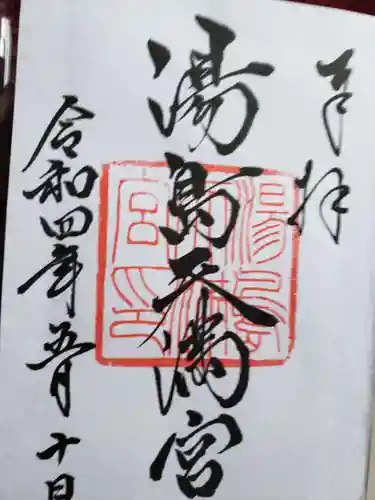 奉拝
湯島天満宮
令和四年五月十日